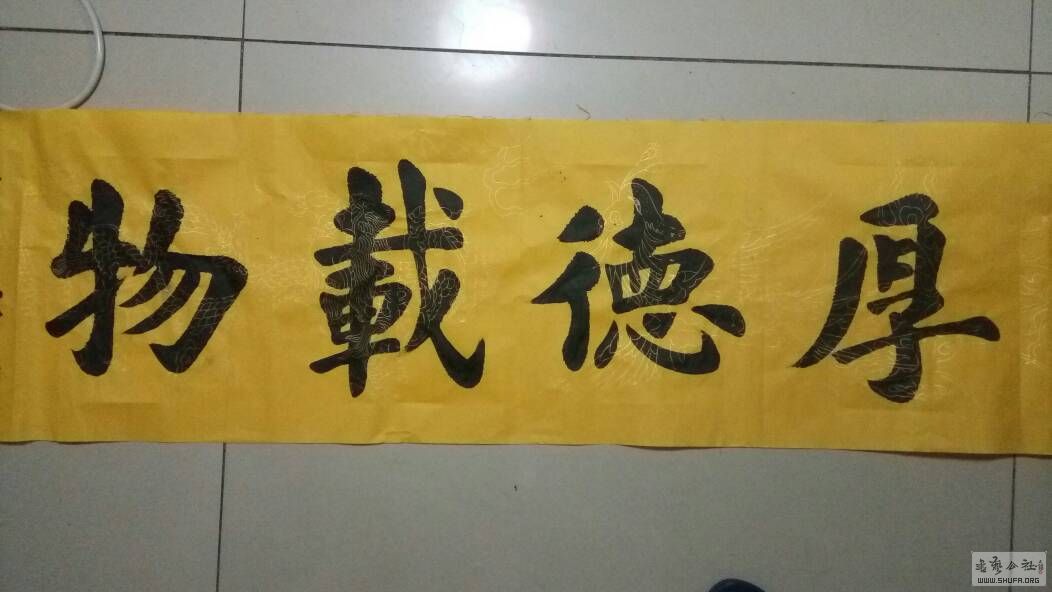 厚德載物
书艺公社
WWW.SHUFA.ORG